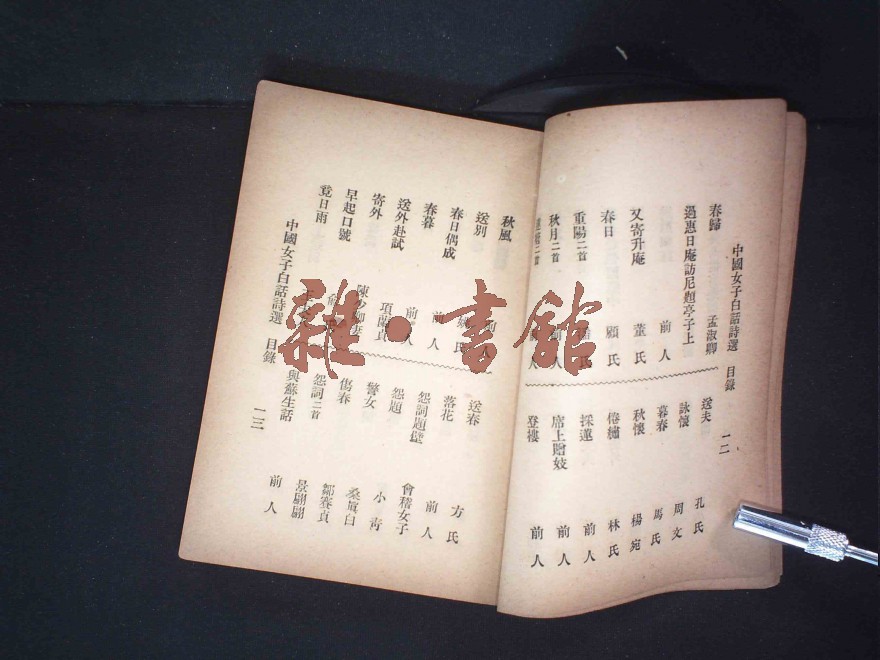 中國女子白話詩選 目錄 一二
春歸 孟淑卿
過惠日庵訪尼題亭子上
又寄升庵 前人
春日 董氏
重陽二首 顧氏
秋月二首
人
送夫 孔氏
詠懷 周文
暮春 馬氏
秋懷 楊宛
倦繡 林氏
採蓮 前人
席上贈妓 前人
登樓 前人
秋風
送別
春日偶成 氏
春暮 前人
送外赴試 前人
寄外 項蘭貞
早起口號 陳少卿妻
竟日雨
送春 方氏
落花 前人
怨詞題壁 會稽女子
怨題 小青
警女 桑貞白
傷春 鄒賽貞
怨詞二首 景翩翩
與蘇生話 前人
中國女子白話詩選 目錄 一三
雜·書館